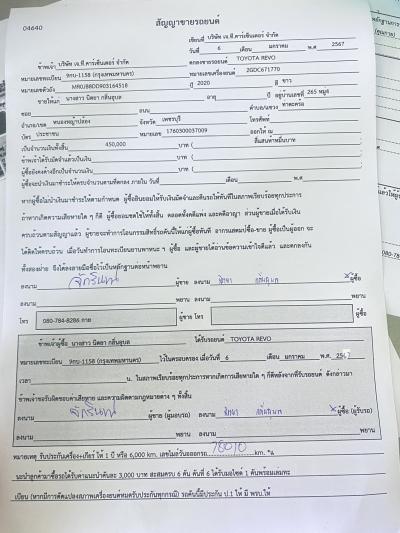 04640
สัญญาขายรถยนต์
เขียนที่ บริษัท เจ.ที.คาร์เซ็นเตอร์ จำกัด
วันที่ 6 เดือน มกราคม พ.ศ 2567
ข้าพเจ้า บริษัท เจ.ที.คาร์เซ็นเตอร์ จำกัด ตกลงขายรถยนต์ TOYOTA REVO
หมายเลขทะเบียน 9กบ-1158 (กรุงเทพมหานคร) หมายเลขเครื่องยนต์ 2GDC671770
หมายเลขตัวถัง MR0JB8DD903164518 ปี 2020 สี ขาว
ขายให้แก่ นางสาว นิตยา กลิ่นอุบล อายุ ปี อยู่บ้านเลขที่ 265 หมู่4
ซอย ถนน ตำบล/แขวง ท่าตะคร้อ
อำเภอ/เขต หนองหญ้าปล้อง จังหวัด เพชรบุรี โทรศัพท์
บัตร ประชาชน หมายเลข 1760300037009 ออกให้ ณ
เป็นจำนวนเงินทั้งสิ้น 450,000 บาท ( สี่แสนห้าหมื่นบาท
ข้าพเจ้าได้รับมัดจำแล้วเป็นเงิน บาท (
ผู้ซื้อยังคงค้างอีกเป็นจำนวนเงิน บาท (
ผู้ซื้อจะนำเงินมาชำระให้ครบจำนวนตามที่ตกลง ภายใน วันที่ เดือน พ.ศ.
หากผู้ซื้อไม่นำเงินมาชำระให้ตามกำหนด ผู้ซื้อยินยอมให้ริบเงินมัดจำและคืนรถให้ทันทีในสภาพเรียบร้อยทุกประการ
ถ้าหากเกิดความเสียหายใด ๆ ก็ดี ผู้ซื้อยอมชดใช้ให้ทั้งสิ้น ตลอดทั้งคดีแพ่ง และคดีอาญา ส่วนผู้ขายเมื่อได้รับเงิน
ครบถ้วนตามสัญญาแล้ว ผู้ขายจะทำการโอนกรรมสิทธิ์รถคันนี้ให้แก่ผู้ซื้อทันที อากรแสตมป์ซื้อ-ขาย ผู้ซื้อเป็นผู้ออก จะ
ได้คิดให้ครบถ้วน เมื่อวันทำการโอนทะเบียนยานพาหนะ ฯ ผู้ซื้อ และผู้ขายได้อ่านข้อความเข้าใจดีแล้ว และตกลงกัน
ทั้งสองฝ่าย จึงได้ลงลายมือชื่อไว้เป็นหลักฐานต่อหน้าพยาน
ลงนาม ผู้ขาย ลงนาม นิตยา กลิ่นอุบล ผู้ซื้อ
ลงนาม พยาน ลงนาม พยาน
โทร 080-784-8286 ผู้ขาย โทร ผู้ซื้อ
ข้าพเจ้าผู้ซื้อ นางสาว นิตยา กลิ่นอุบล ได้รับรถยนต์ TOYOTA REVO
หมายเลขทะเบียน 9กบ-1158 (กรุงเทพมหานคร) ไว้ในครอบครอง เมื่อวันที่ 6 เดือน มกราคม พ.ศ. 2567
เวลา น. ในสภาพเรียบร้อยทุกประการหากเกิดการเสียหายใด ๆ ก็ดีหลังจากที่รับรถยนต์ ดังกล่าวมา
ข้าพเจ้าจะรับผิดชอบค่าเสียหาย และความผิดตามกฎหมายต่าง ๆ ทั้งสิ้น
ลงนาม ผู้ขาย (ผู้มอบรถ) ลงนาม นิตยา กลิ่นอุบล ผู้ซื้อ (ผู้รับรถ)
ลงนาม พยาน ลงนาม พยาน
หมายเหตุ รับประกันเครื่อง+เกียร์ ให้ 1 ปี หรือ 6,000 km. เลขไมล์วันออกรถ 78010 km.
แนะนำลูกค้ามาซื้อรถได้รับค่าแนะนำคันละ 3,000 บาท สะสมครบ 6 คัน คันที่ 6 ได้รับมอไซค์ 1 คันพร้อมเล่มทะ
เบียน (หากมีการดัดแปลงสภาพเครื่องยนต์หมดรับประกันทุกกรณี) รถคันนี้มีประกัน ป.1 ให้ มี พรบ.ให้